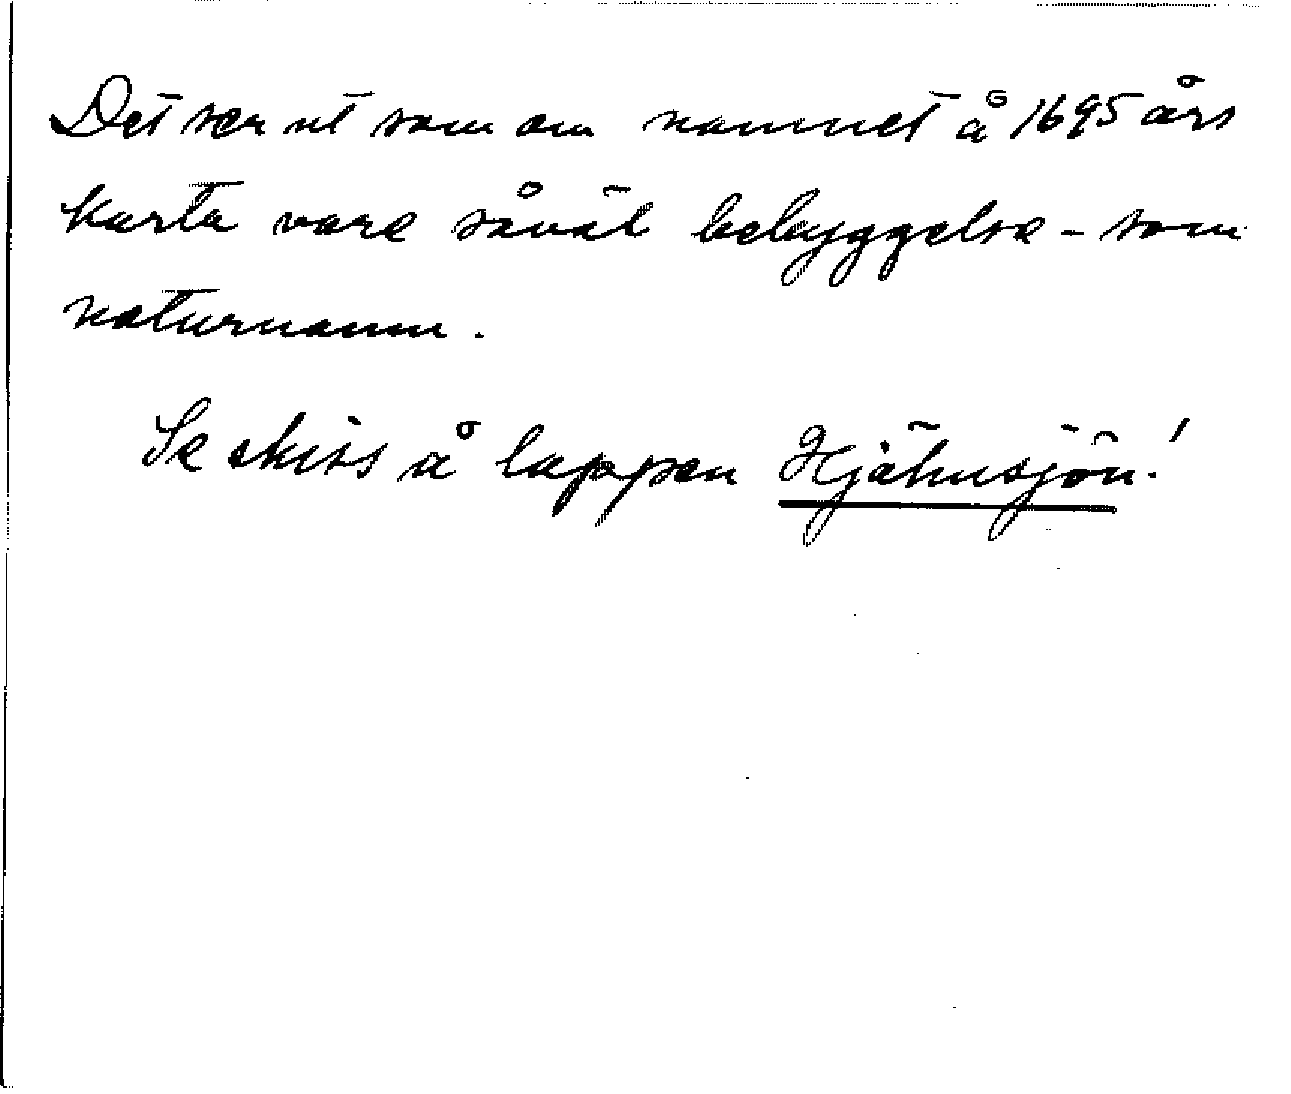 Det ser ut som om namnet å 1695 års
karta vore såväl bebyggelse- som
naturnamn.
Se skiss å lappen Hjähusjön!